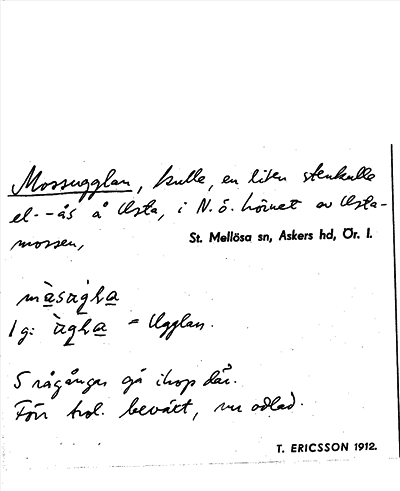 Mossugglan, kulle, en liten stenkulle
el. -ås å Usta, i N.ö. hörnet av Usta-
mossen,
St. Mellösa sn, Askers hd, Ör. l.
= Ugglan.
5 rågångar gå ihop där.
Förr trol. bevåxt, nu odlad.
T. ERICSSON 1912.